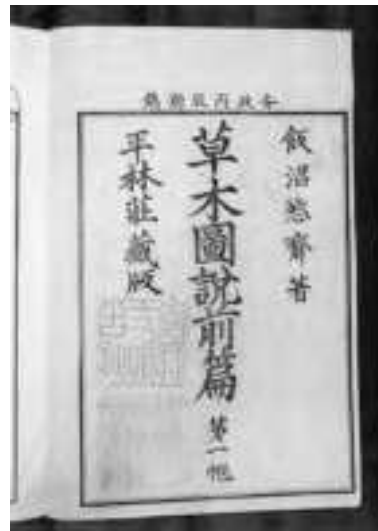 安政丙辰新鐫
飯沼慾齋著
草木圖說前篇 第一帙
平林莊藏版